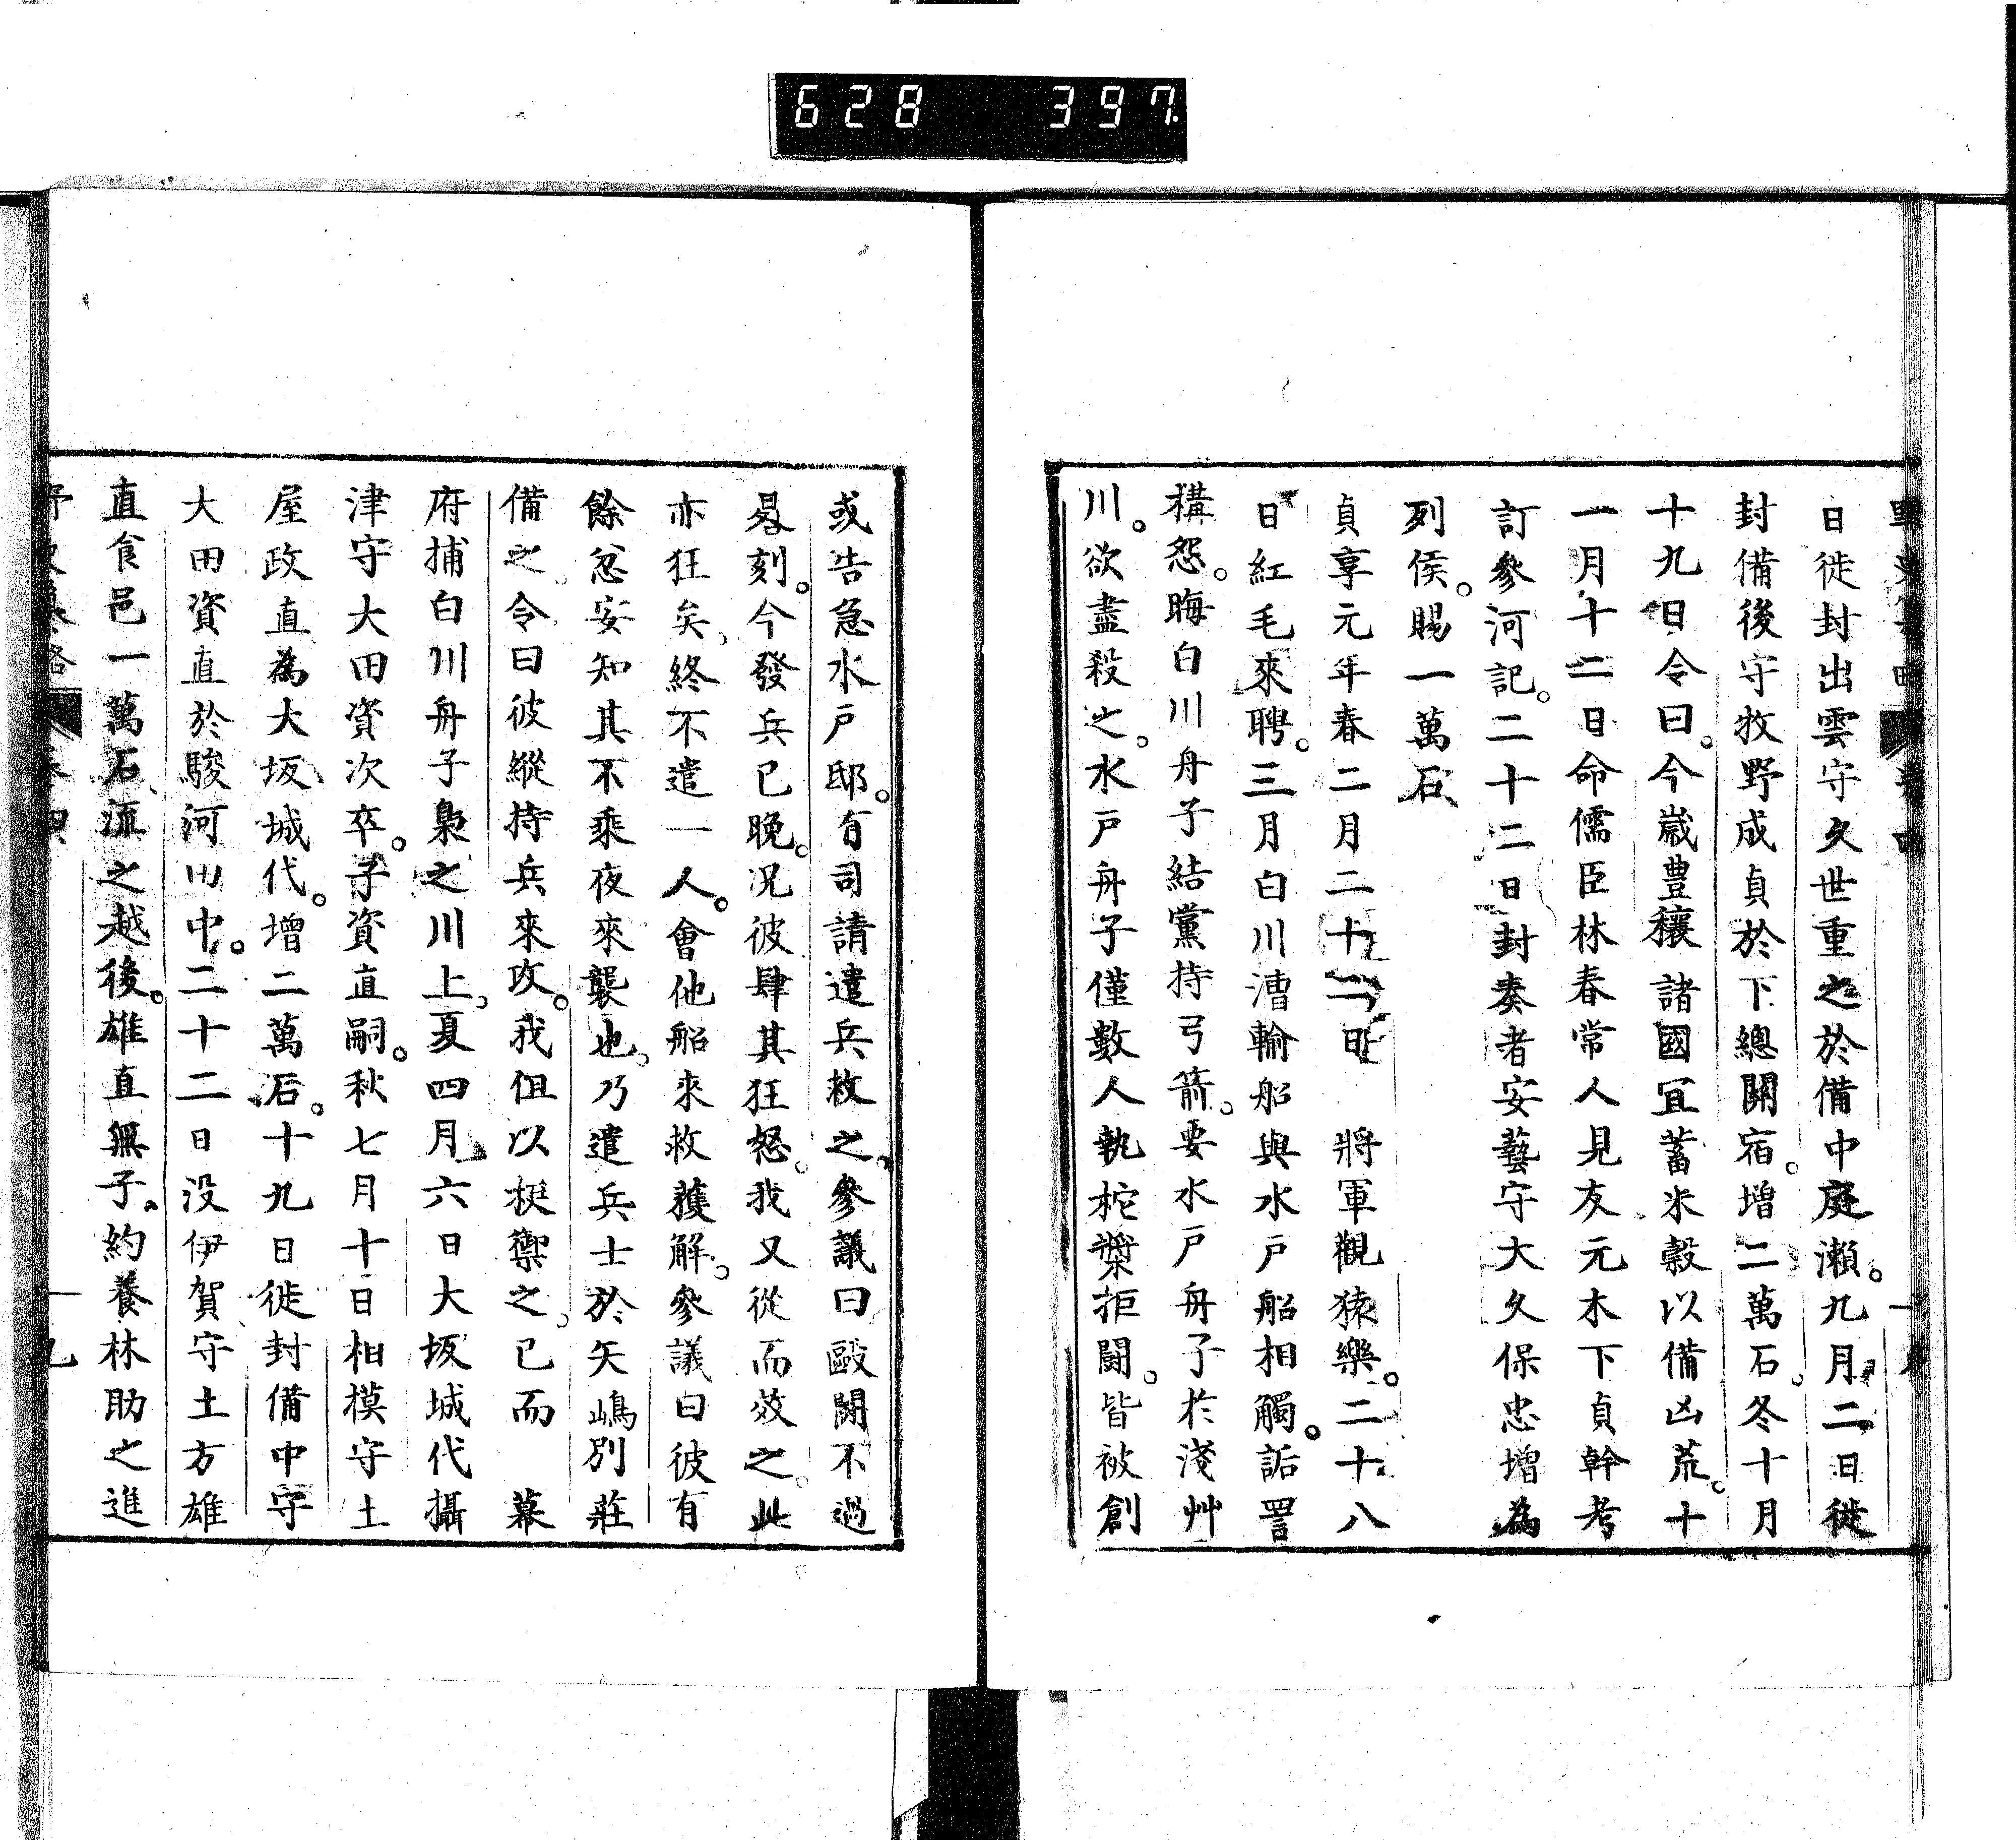 628 397
日徙封出雲守久世重之於備中庭瀬。九月二日徙
封備後守牧野成貞於下總關宿。增二萬石。冬十月
十九日令曰。今歲豊穰諸國宜蓄米穀以備凶荒。十
一月十二日命儒臣林春常人見友元木下貞幹考
訂參河記。二十二日封奏者安藝守大久保忠增為
列侯。賜一萬石
貞享元年春二月二十二日　將軍觀猿樂。二十八
日紅毛來聘。三月白川漕輸船與水戸船相觸。詬詈
構怨。晦白川舟子結黨持弓箭。要水戸舟子於淺艸
川。欲盡殺之。水戸舟子僅數人執柁槳拒鬪。皆被創
或告急水戸邸。有司請遣兵救之。參議曰毆鬪不過
晷刻。今發兵已晚。况彼肆其狂怒。我又從而效之。此
亦狂矣。終不遣一人。會他船來救獲解。參議曰彼有
餘忿安知其不乘夜來襲也。乃遣兵士於矢嶋別莊
備之。令曰彼縱持兵來攻。我但以梃禦之。已而　幕
府捕白川舟子梟之川上。夏四月六日大坂城代攝
津守大田資次卒。子資直嗣。秋七月十日相模守土
屋政直為大坂城代。增二萬石。十九日徙封備中守
大田資直於駿河田中。二十二日没伊賀守土方雄
直食邑一萬石流之越後。雄直無子。約養林助之進